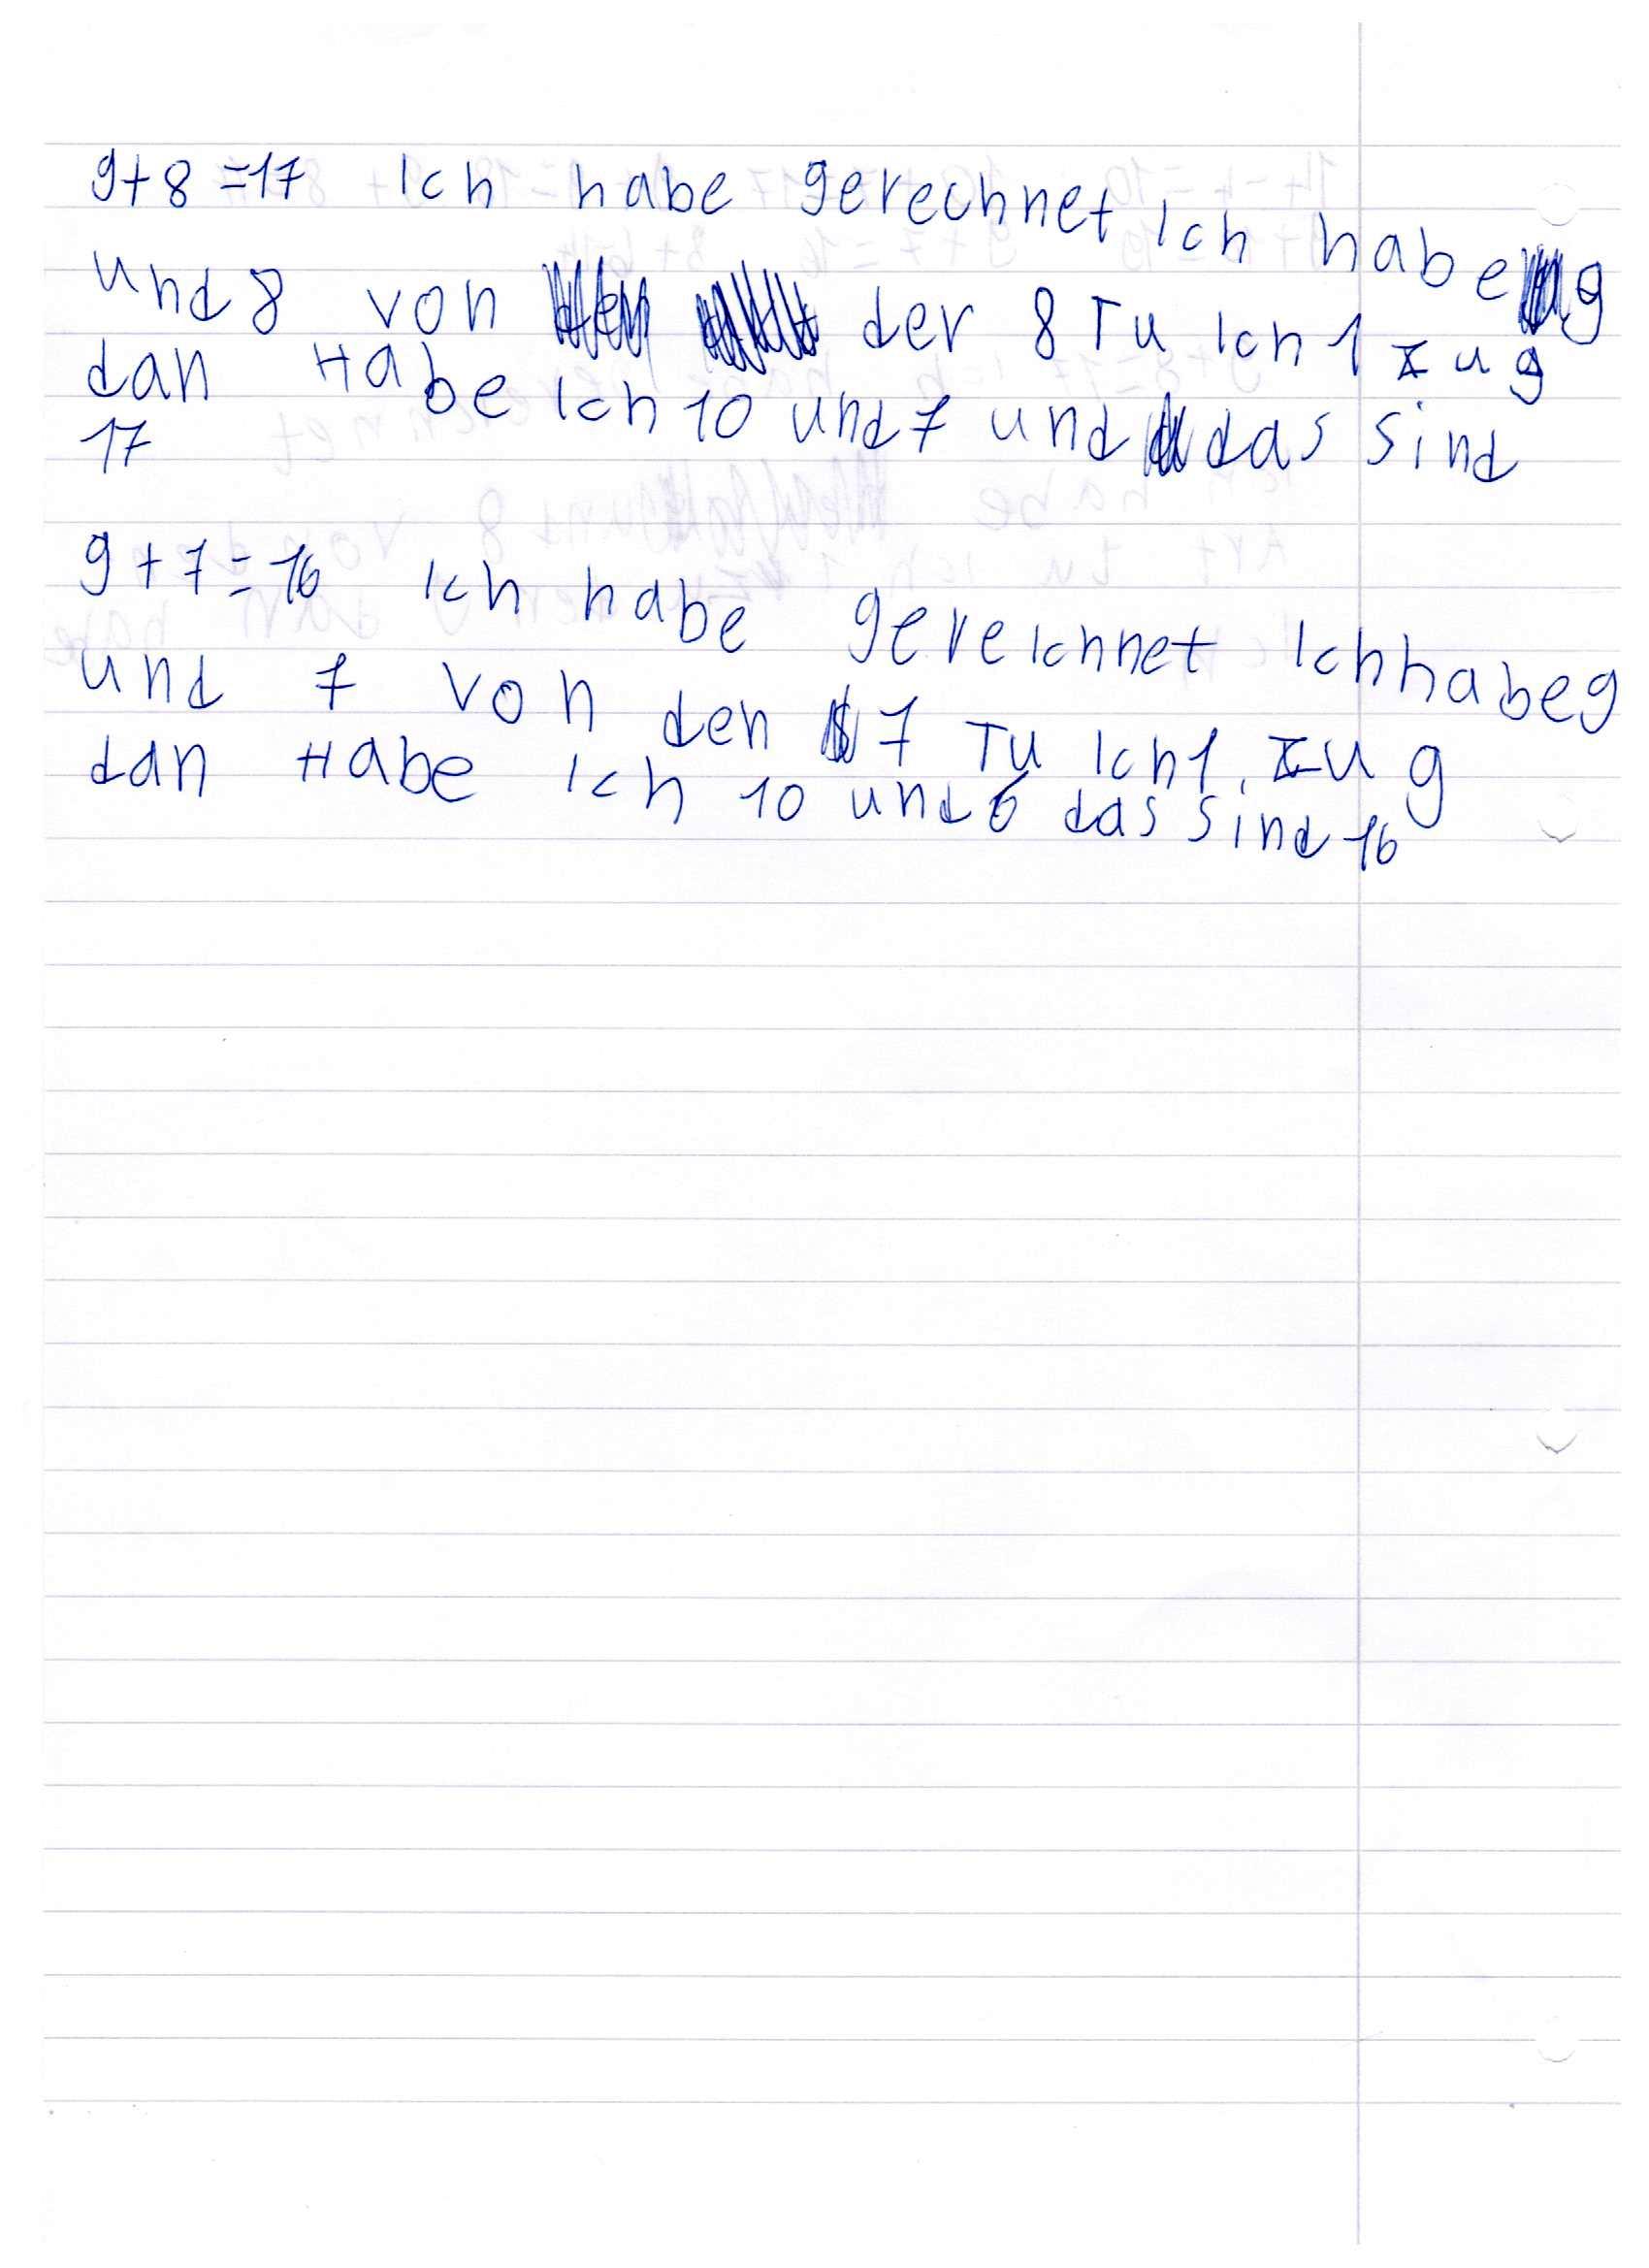 9+8=17 Ich habe gerechnet Ich habe 9
und 8 von der 8 Tu Ich 1 zu 9
dan Habe Ich 10 und 7 und das sind
17
9+7=16 Ich habe gereichnet Ich habe 9
und 7 von den 7 Tu Ich 1 zu 9
dan Habe Ich 10 und 6 das sind 16